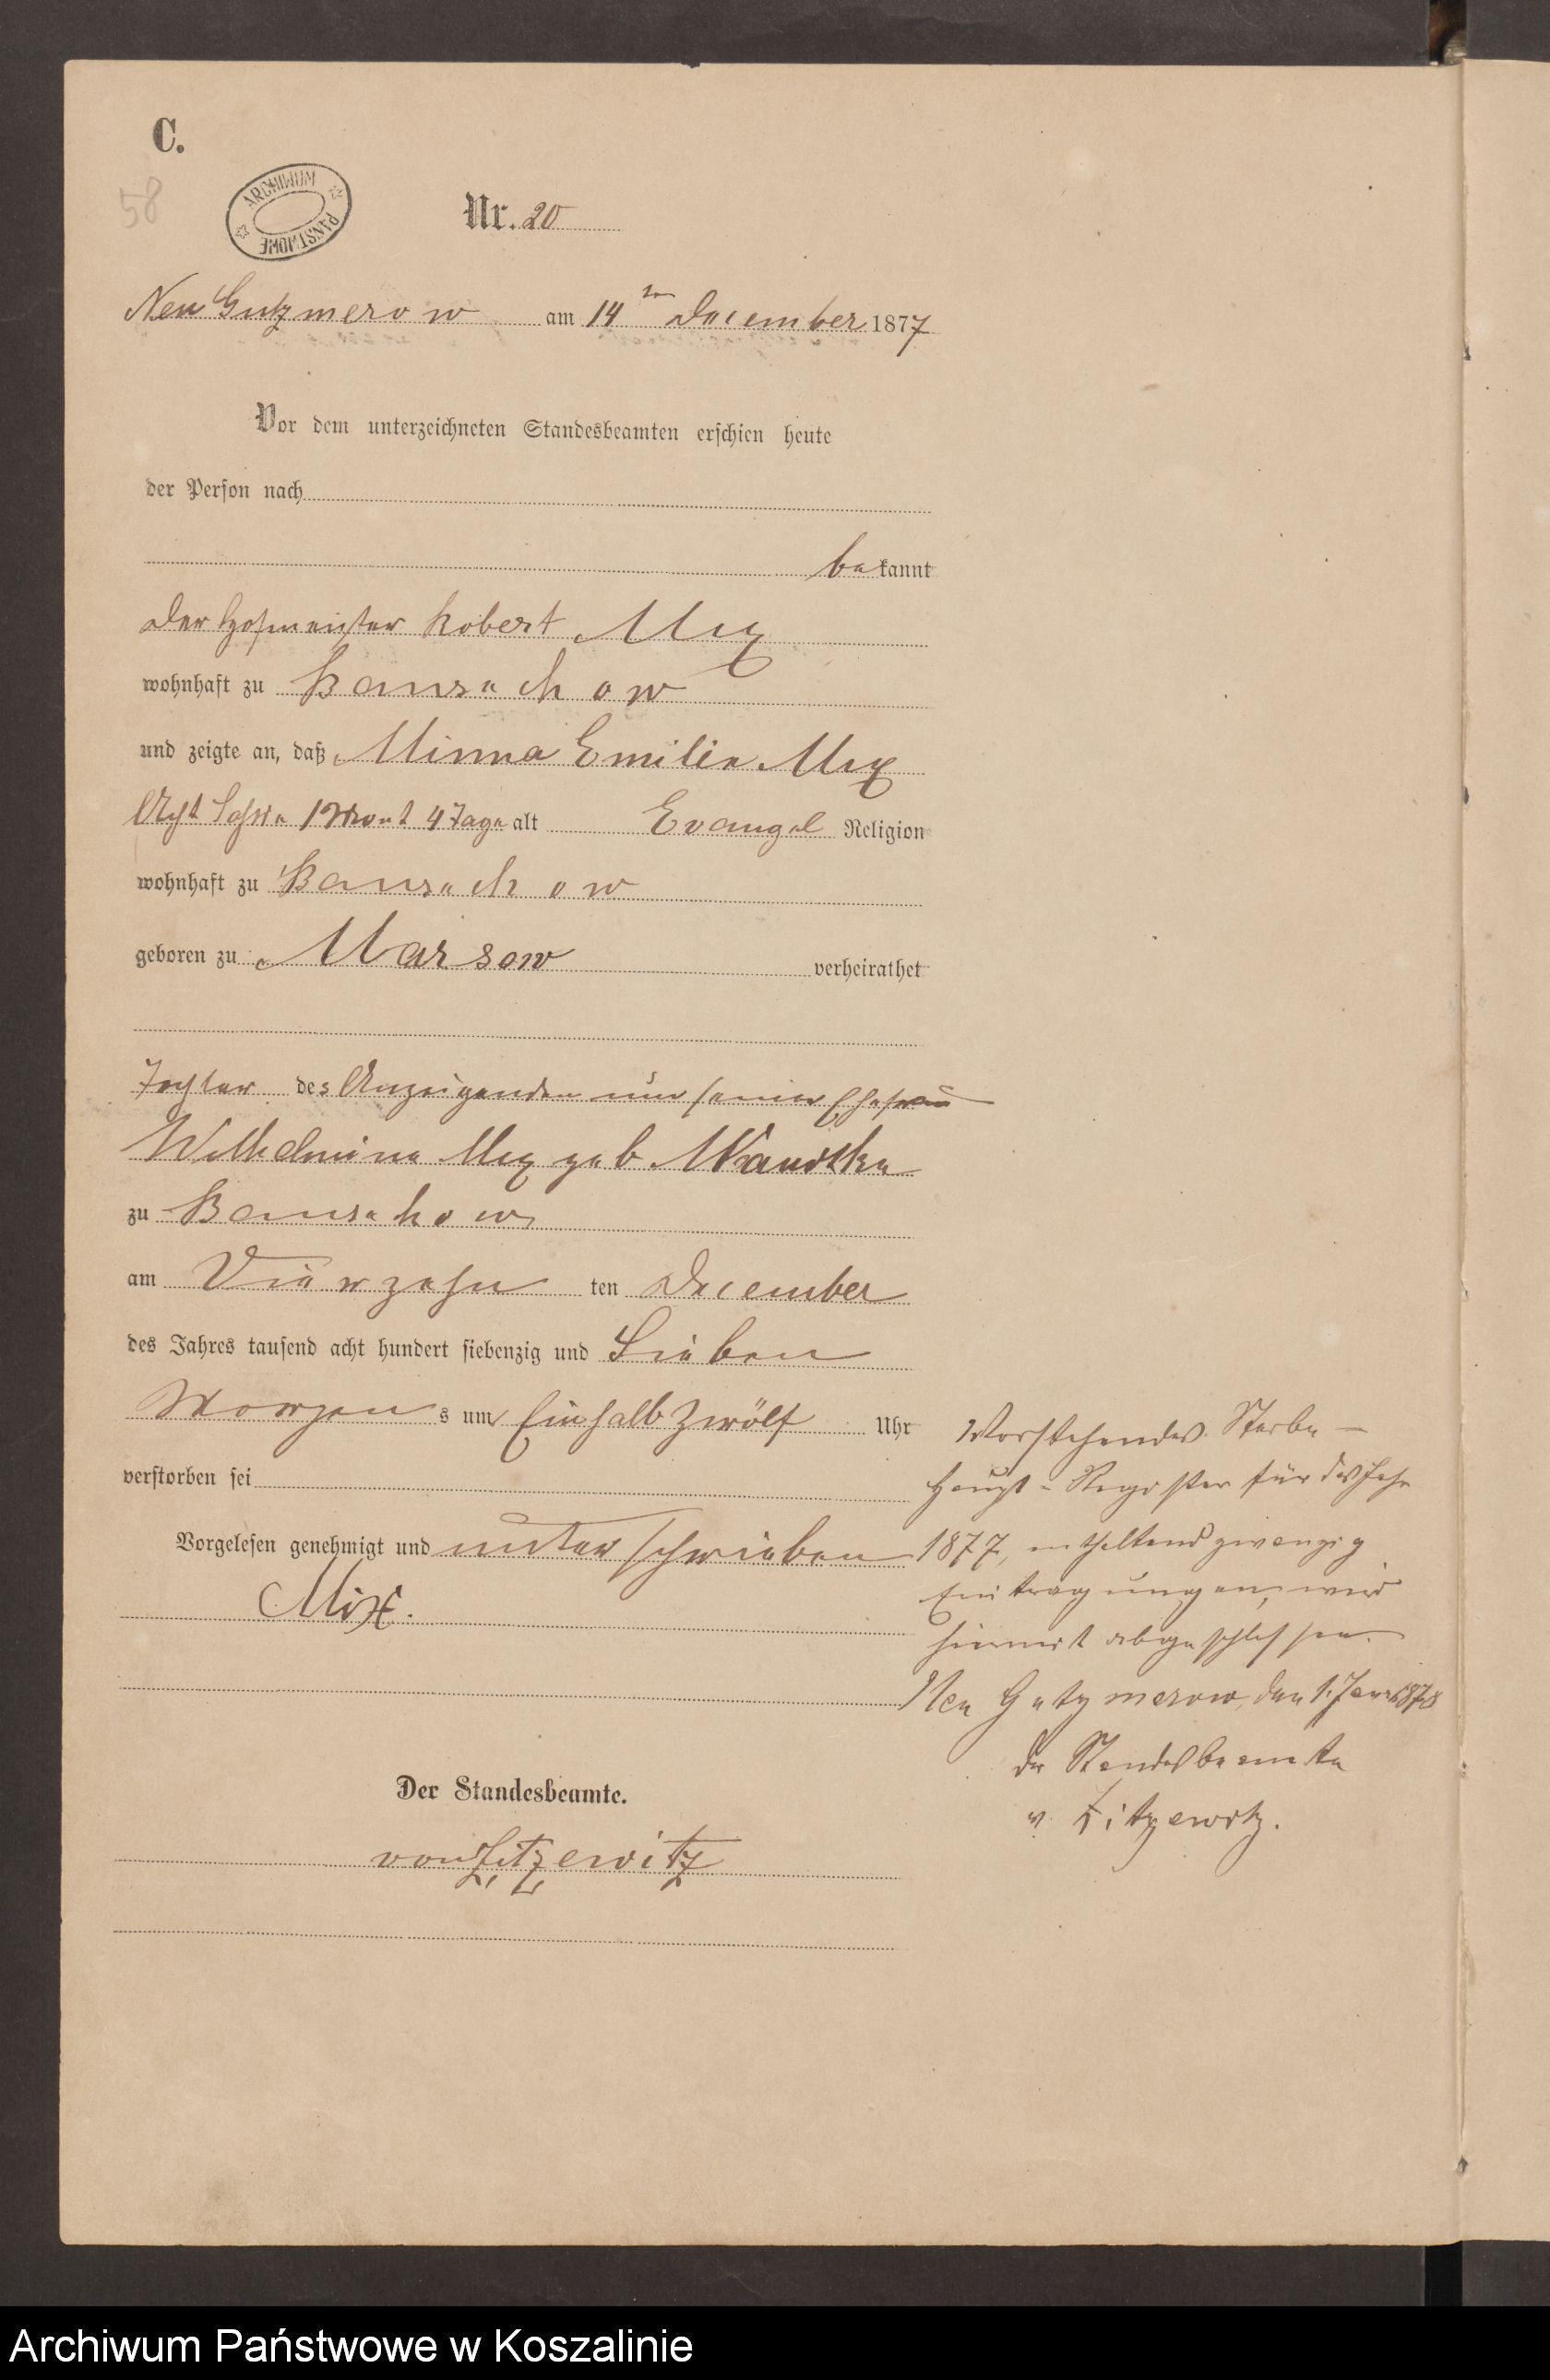 C.
58
ARCHIWUM PAŃSTWOWE
Nr. 20
Neu Gutzmerow am 14ten December 1877
Vor dem unterzeichneten Standesbeamten erschien heute
der Person nach
bekannt
der Hofmeister Robert Mix
wohnhaft zu Bansekow
und zeigte an, daß Minna Emilie Mix
Acht Jahre 1 Monat 4 Tage alt Evangel Religion
wohnhaft zu Bansekow
geboren zu Marsow verheirathet
Tochter des Anzeigenden und seiner Ehefrau
Wilhelmine Mix geb
zu Bansekow
am Vierzehn ten December
des Jahres tausend acht hundert siebenzig und Sieben
Morgens um Einhalb Zwölf Uhr
verstorben sei
Vorgelesen genehmigt und unterschrieben
Mix.
Der Standesbeamte.
von Zitzewitz
Vorstehendes Sterbe-
Haupt-Register für das Jahr
1877, enthaltend zwanzig
Eintragungen, wird
hiermit abgeschlossen.
Neu Gutzmerow, den 1. Januar 1878
Der Standesbeamte
v. Zitzewitz.
Archiwum Państwowe w Koszalinie